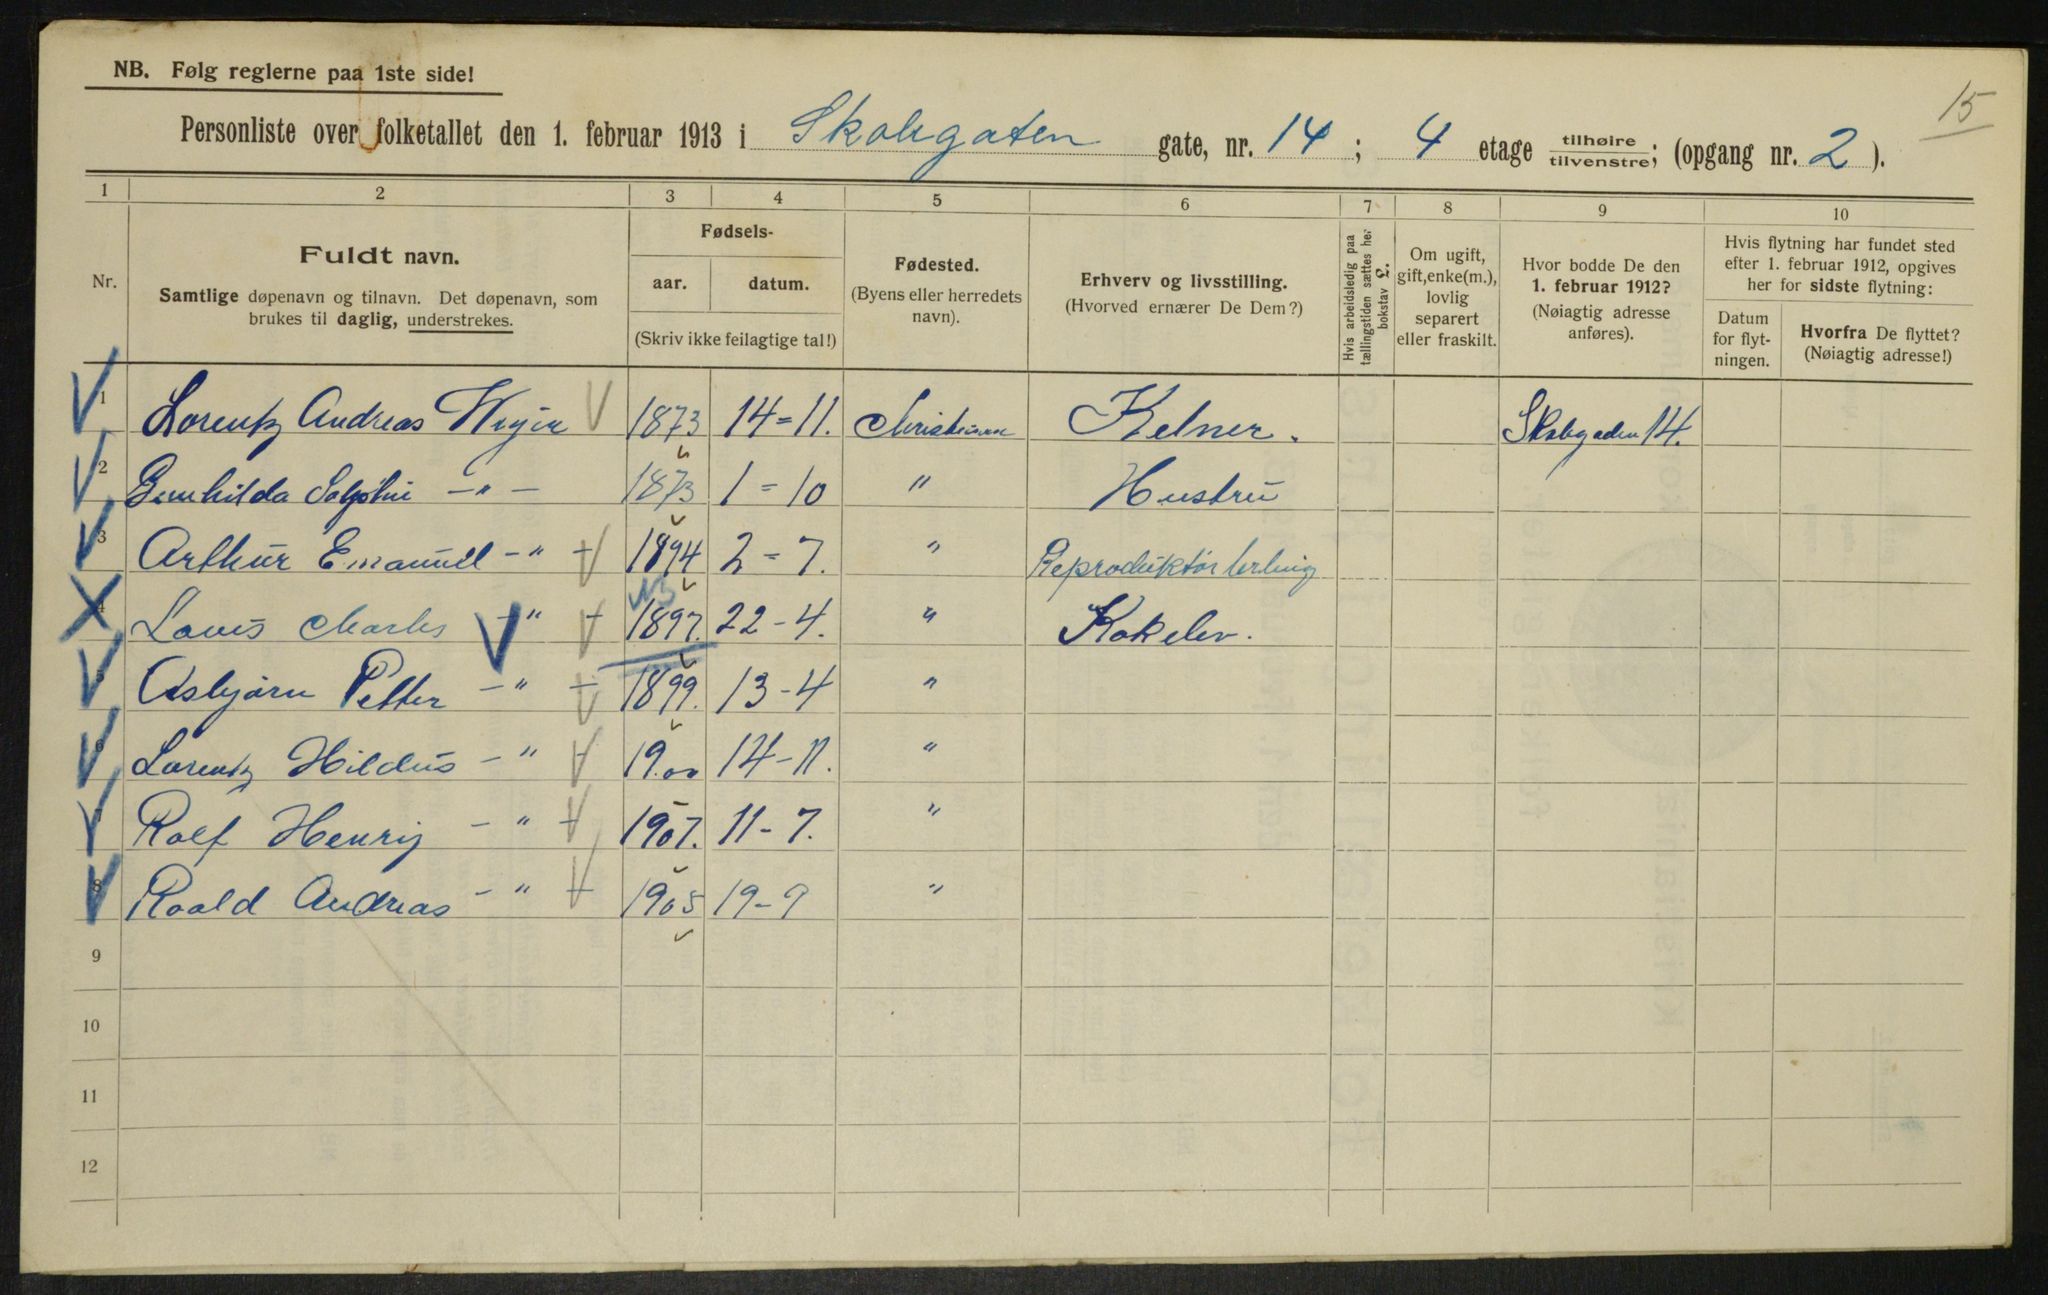 15
NB. Følg reglerne paa 1ste side!
Personliste over folketallet den 1. februar 1913 i Skobgaten gate, nr. 14 ; 4 etage tilhøire tilvenstre; (opgang nr. 2 ).
1 2 3 4 5 6 7 8 9 10
Nr.
Fuldt navn.
Samtlige døpenavn og tilnavn. Det døpenavn, som
brukes til daglig, understrekes.
Fødsels-
aar. datum.
(Skriv ikke feilagtige tal!)
Fødested.
(Byens eller herredets
navn).
Erhverv og livsstilling.
(Hvorved ernærer De Dem?)
Hvis arbeidsledig paa
tællingstiden sættes her
bokstav £.
Om ugift,
gift, enke(m.),
lovlig
separert
eller fraskilt.
Hvor bodde De den
1. februar 1912?
(Nøiagtig adresse
anføres).
Hvis flytning har fundet sted
efter 1. februar 1912, opgives
her for sidste flytning:
Datum
for flyt-
ningen.
Hvorfra De flyttet?
(Nøiagtig adresse!)
1 Lorentz Andreas 1873 14=11. Christiania Kelner. Skobgaden 14.
2 Gunhilda -"- 1873 1=10 " Hustru
3 Arthur Emanuel -"- 1894 2=7. " Reproduktør
4 Louis Charles -"- 1897. 22-4. " Kokelev.
5 Asbjørn Petter -"- 1899. 13-4 "
6 Lorentz Hildus -"- 19.00 14-11. "
7 Rolf Henry -"- 1907. 11-7. "
8 Roald Andreas -"- 1905 19-9 "
9
10
11
12